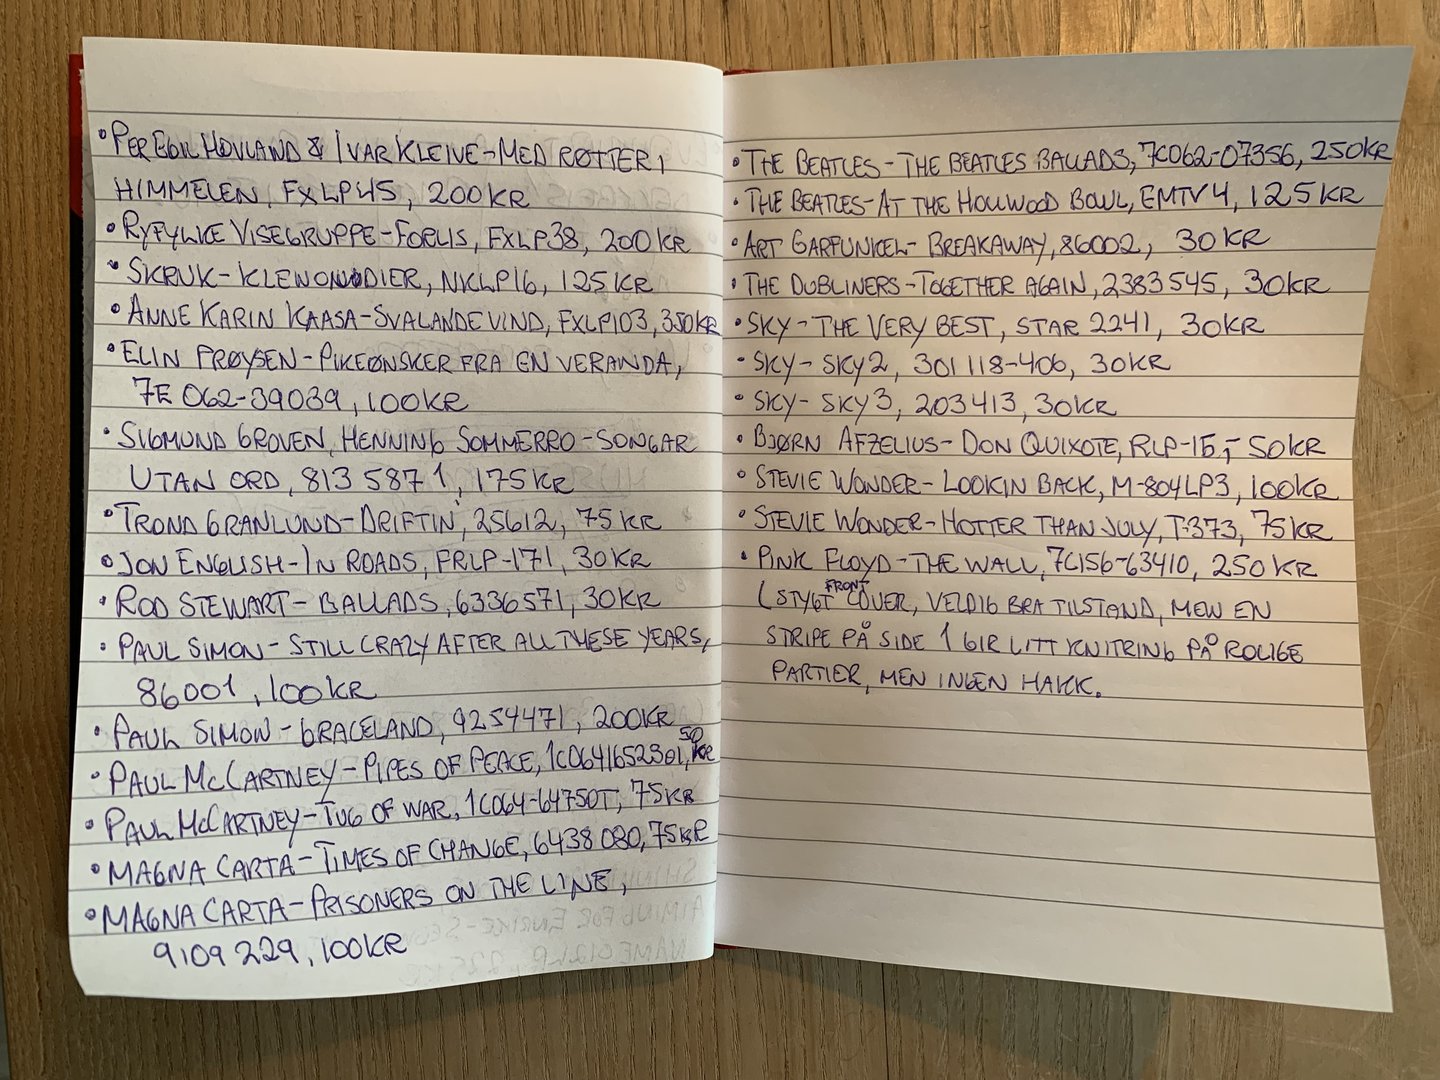 • PER EGIL HOVLAND & IVAR KLEIVE - MED RØTTER I
HIMMELEN, FXLP45, 200KR
• RYFYLKE VISEGRUPPE - FORLIS, FXLP38, 200KR
• SKRUK - KLEWONODIER, NKLP16, 125KR
• ANNE KARIN KAASA - SVALANDE VIND, FXLP103, 350KR
• ELIN PRØYSEN - PIKEØNSKER FRA EN VERANDA,
7E 062-39039, 100KR
• SIGMUND GROVEN, HENNING SOMMERRO - SONGAR
UTAN ORD, 813 587 1, 175KR
• TROND GRANLUND - DRIFTIN', 25612, 75KR
• JON ENGLISH - IN ROADS, FRLP-171, 30KR
• ROD STEWART - BALLADS, 6336571, 30KR
• PAUL SIMON - STILL CRAZY AFTER ALL THESE YEARS,
86001, 100KR
• PAUL SIMON - GRACELAND, 9254471, 200KR
• PAUL McCARTNEY - PIPES OF PEACE, 1C0641652301, 50KR
• PAUL McCARTNEY - TUG OF WAR, 1C064-64750T, 75KR
• MAGNA CARTA - TIMES OF CHANGE, 6438 080, 75KR
• MAGNA CARTA - PRISONERS ON THE LINE,
9109 229, 100KR
• THE BEATLES - THE BEATLES BALLADS, 7C062-07356, 250KR
• THE BEATLES - AT THE HOLLWOOD BOWL, EMTV4, 125KR
• ART GARFUNKEL - BREAKAWAY, 86002, 30KR
• THE DUBLINERS - TOGETHER AGAIN, 2383545, 30KR
• SKY - THE VERY BEST, STAR 2241, 30KR
• SKY - SKY2, 301 118-406, 30KR
• SKY - SKY3, 203413, 30KR
• BJØRN AFZELIUS - DON QUIXOTE, RLP-15,- 50KR
• STEVIE WONDER - LOOKIN BACK, M-804LP3, 100KR
• STEVIE WONDER - HOTTER THAN JULY, T-373, 75KR
• PINK FLOYD - THE WALL, 7C156-63410, 250KR
(STYGT FRONT COVER, VELDIG BRA TILSTAND, MEN EN
STRIPE PÅ SIDE 1 GIR LITT KNITRING PÅ ROLIGE
PARTIER, MEN INGEN HAKK.